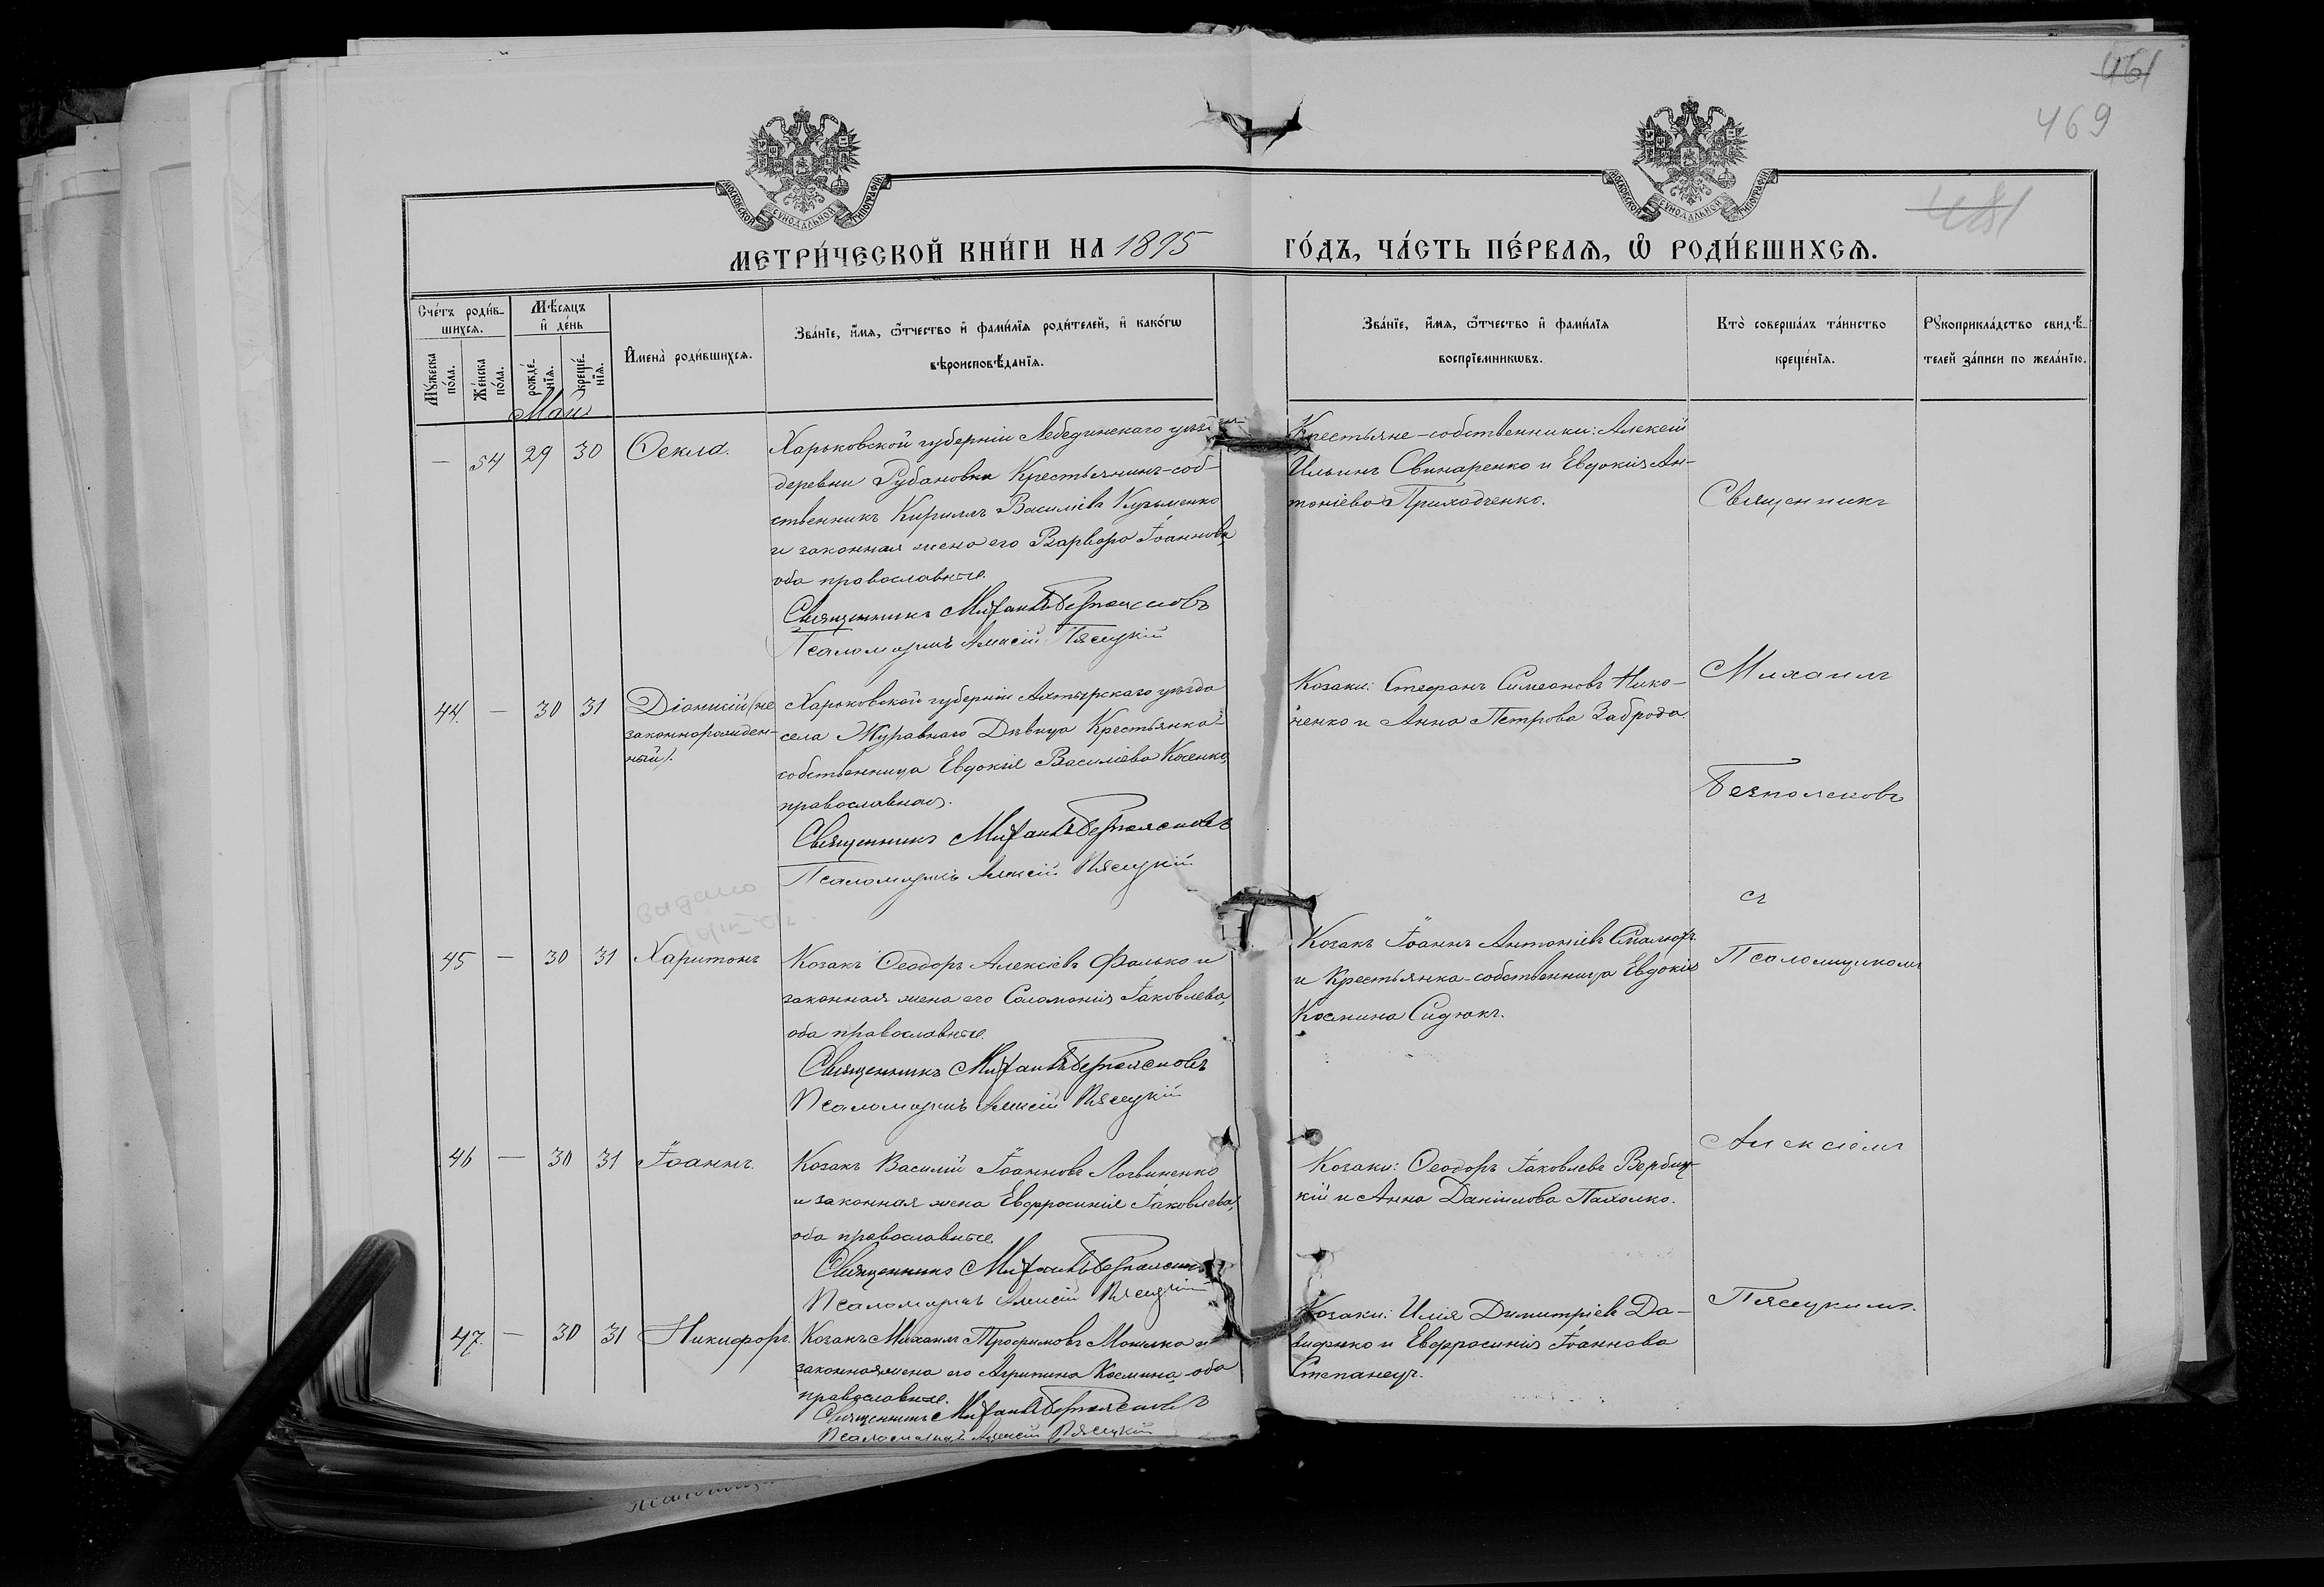 461
469
481
МОСКОВСКОЙ СѴНОДАЛЬНОЙ ТИПОГРАФІИ
МОСКОВСКОЙ СѴНОДАЛЬНОЙ ТИПОГРАФІИ
МЕТРИ́ЧЕСКОЙ КНИ́ГИ НА 1895 ГО́ДЪ, ЧА́СТЬ ПЕ́РВАѦ, Ѡ҆ РОДИ́ВШИХСѦ.
Сче́тъ роди́в-
шихсѧ.
Мꙋ́жеска по́ла.
Же́нска по́ла.
Мѣ́сѧцъ и҆ де́нь
рожде́-нїѧ.
креще́-нїѧ.
И҆мена̀ роди́вшихсѧ.
Зва́нїе, и҆́мѧ, ѻ҆́тчество и҆ фами́лїѧ роди́телей, и҆ како́гѡ
вѣроисповѣ́данїѧ.
Зва́нїе, и҆́мѧ, ѻ҆́тчество и҆ фами́лїѧ
воспрїе́мникѡвъ.
Кто̀ соверша́лъ та́инство
креще́нїѧ.
Рꙋкоприкла́дство свидѣ́-
телей за́писи по жела́нїю.
Май
— 54 29 30 Ѳекла.
Харьковской губерніи Лебединскаго уѣзда
деревни Рубановки Крестьянинъ-соб-
ственникъ Кириллъ Василіевъ Кузьменко
и законная жена его Варвара Іоаннова,
оба православные.
Священникъ Михаилъ Безпоясковъ
Псаломщикъ Алексій Пясецкій
Крестьяне-собственники: Алексій
Ильинъ Свинаренко и Евдокія Ан-
тоніева Приходченко.
Священникъ
44. — 30 31 Діонисій (не
законнорожден-
ный).
Харьковской губерніи Ахтырскаго уѣзда
села Журавнаго Дѣвица Крестьянка-
собственница Евдокія Василіева Косенко,
православная.
Священникъ Михаилъ Безпоясковъ
Псаломщикъ Алексій Пясецкій
Козаки: Стефанъ Симеоновъ Нико-
ненко и Анна Петрова Заброда.
Михаилъ
Безпоясковъ
съ
видано
45 — 30 31 Харитонъ
Козакъ Ѳеодоръ Алексіевъ Фалько и
законная жена его Соломонія Іаковлева,
оба православные.
Священникъ Михаилъ Безпоясковъ
Псаломщикъ Алексій Пясецкій
Козакъ Іоаннъ Антоніевъ
и Крестьянка-собственница Евдокія
Космина Сидюкъ.
Псаломщикомъ
46 — 30 31 Іоаннъ.
Козакъ Василій Іоанновъ Логвиненко
и законная жена Евфросинія Іаковлева,
оба православные.
Священникъ Михаилъ Безпоясковъ
Псаломщикъ Алексій Пясецкій
Козаки: Ѳеодоръ Іаковлевъ Вербиц-
кій и Анна Даніилова Пахолко.
Алексіемъ
47. — 30 31 Никифоръ.
Козакъ Михаилъ Трофимовъ Мокилко и
законная жена его Агрипина Космина, оба
православные.
Священникъ Михаилъ Безпоясковъ
Псаломщикъ Алексій Пясецкій
Козаки: Илія Димитріевъ Да-
виденко и Евфросинія Іоаннова
Степанецъ.
Пясецкимъ.